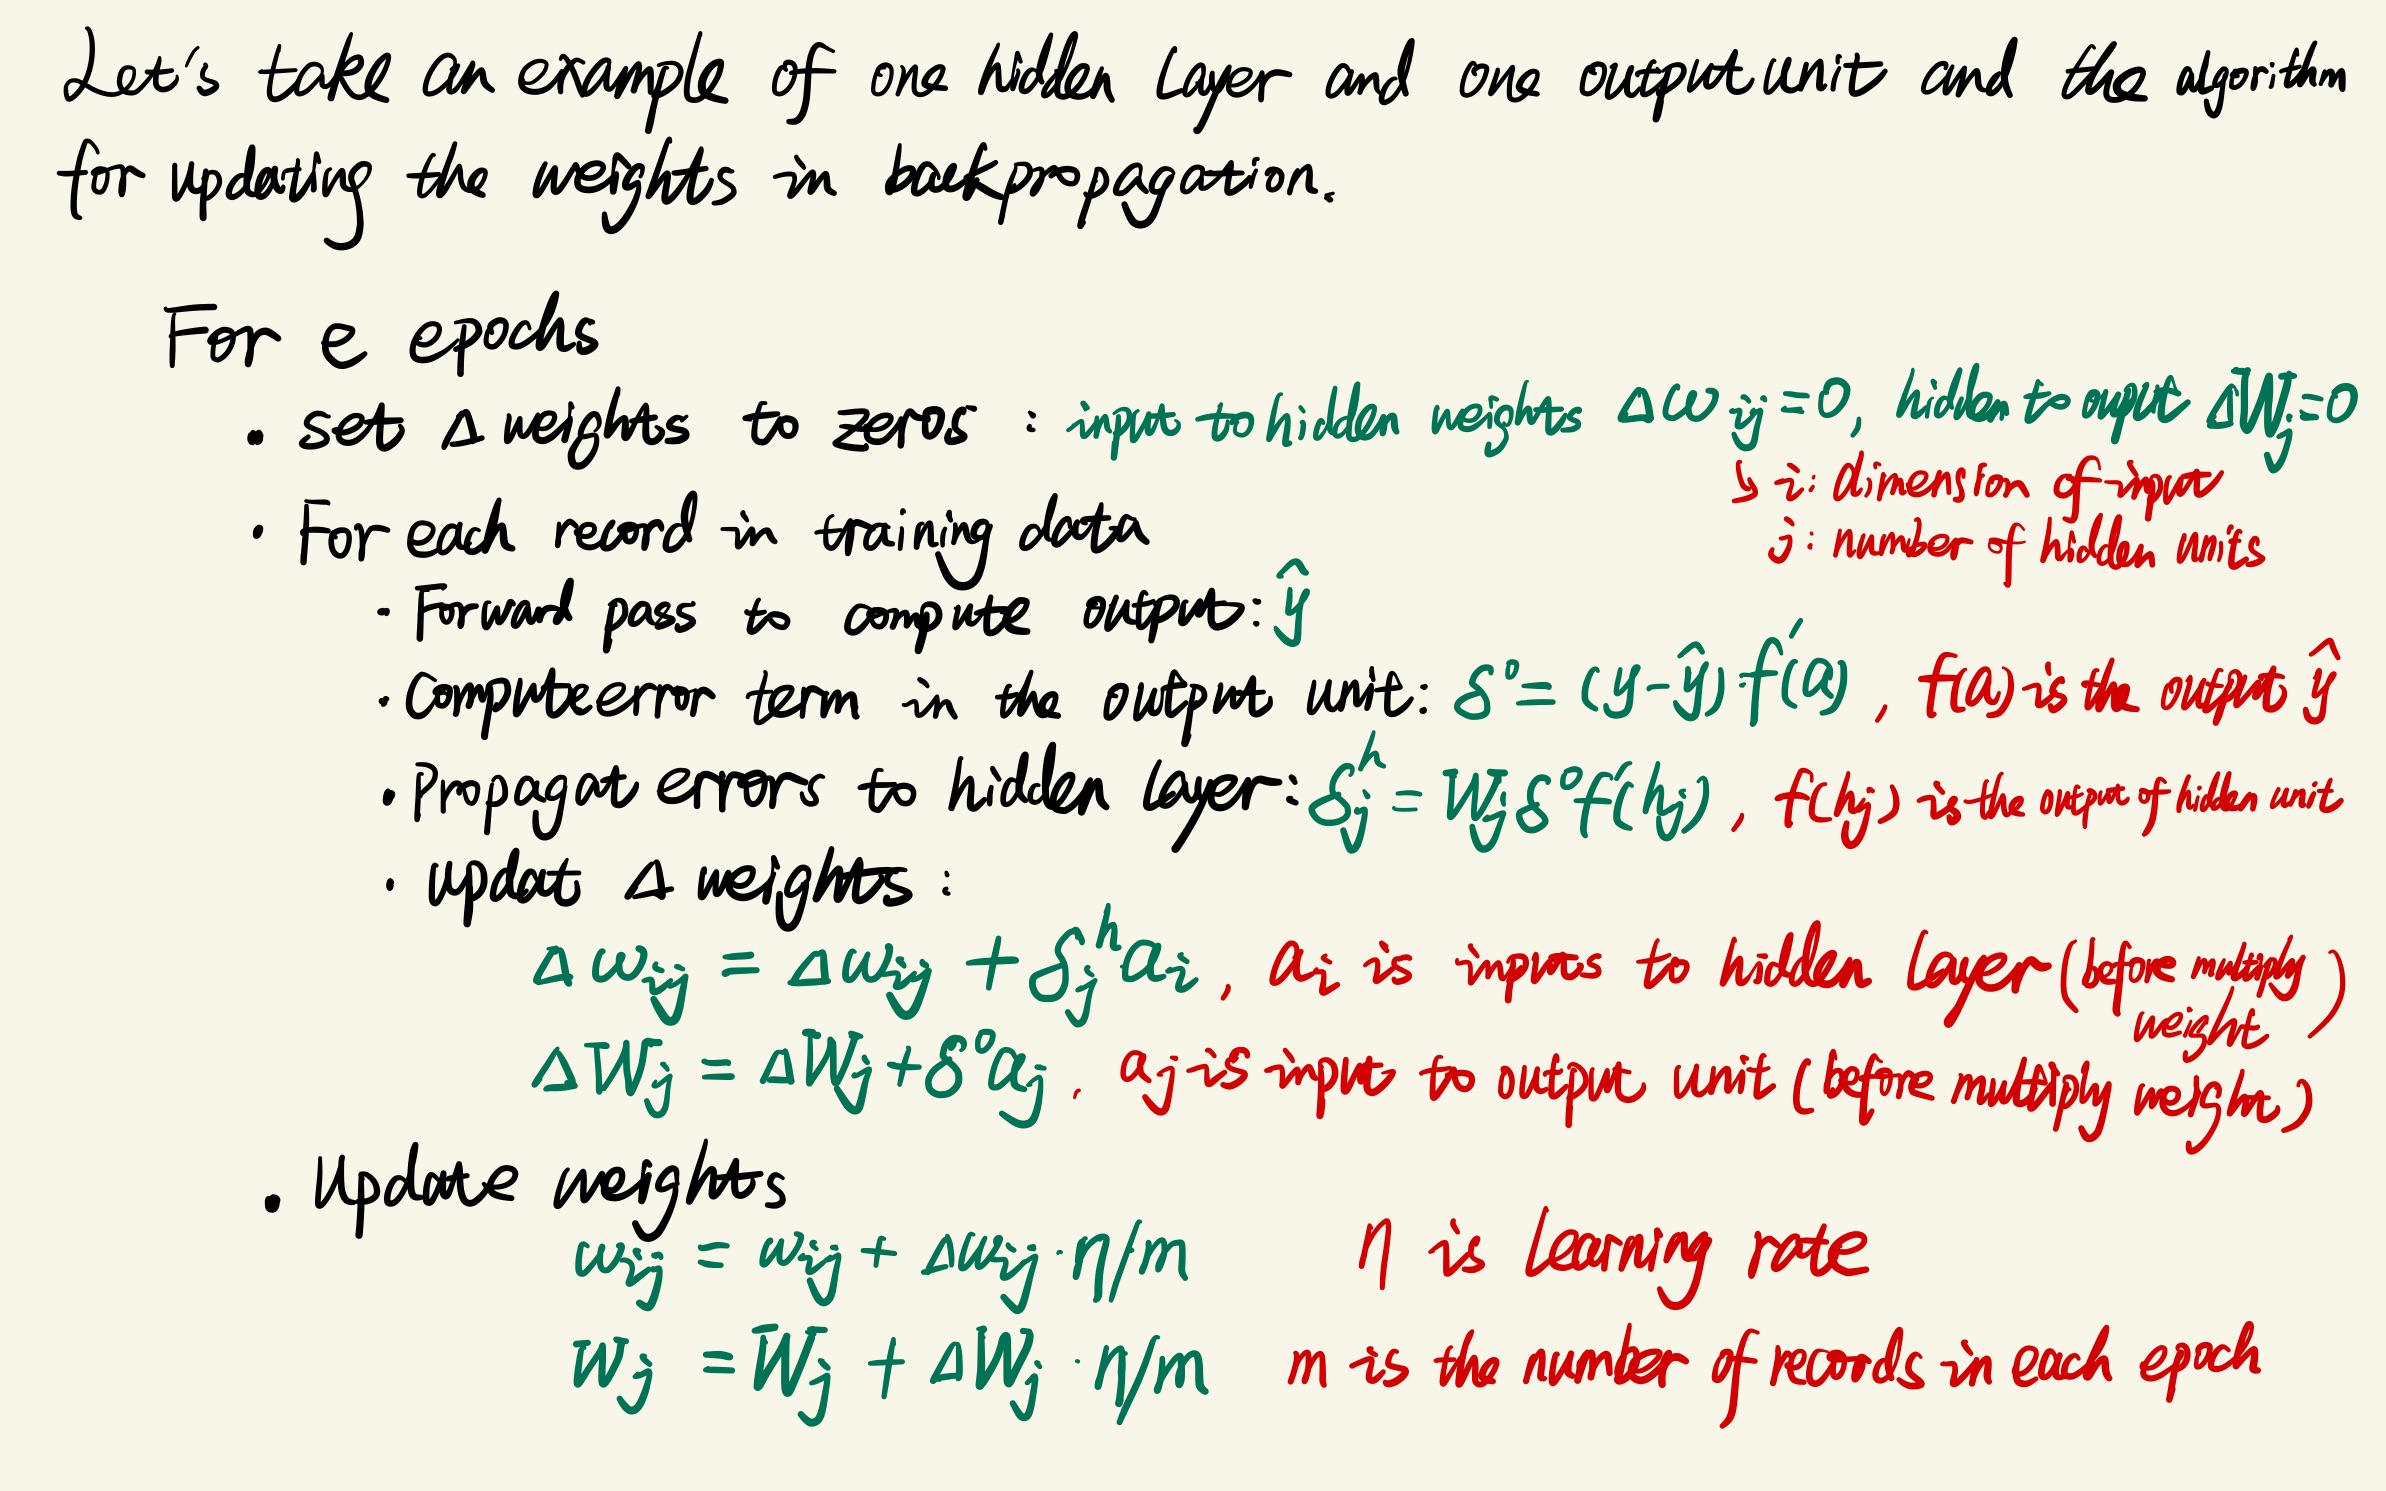 Let's take an example of one hidden layer and one output unit and the algorithm
for updating the weights in backpropagation.
For e epochs
· set Δ weights to zeros : input to hidden weights Δw_ij = 0, hidden to ouput ΔW_j = 0
↳ i: dimension of input
j: number of hidden units
· For each record in training data
· Forward pass to compute output: ŷ
· Compute error term in the output unit: δ° = (y-ŷ)·f′(a) , f(a) is the output ŷ
· Propagat errors to hidden layer: δ_j^h = W_j δ° f′(h_j) , f(h_j) is the output of hidden unit
· updat Δ weights :
Δw_ij = Δw_ij + δ_j^h a_i , a_i is inputs to hidden layer (before multiply
weight)
ΔW_j = ΔW_j + δ° a_j , a_j is input to output unit (before multiply weight)
· Update weights
w_ij = w_ij + Δw_ij · η/m η is learning rate
W_j = W_j + ΔW_j · η/m m is the number of records in each epoch